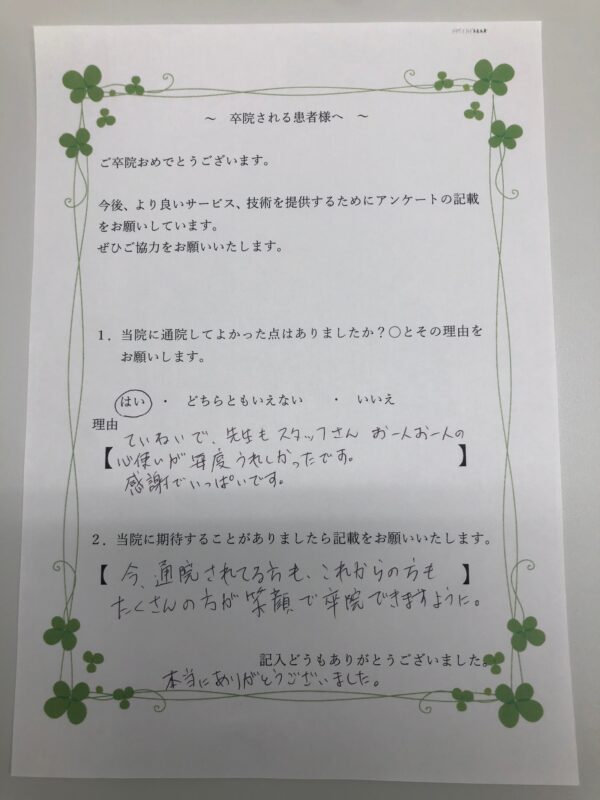 ～ 卒院される患者様へ ～
ご卒院おめでとうございます。
今後、より良いサービス、技術を提供するためにアンケートの記載
をお願いしています。
ぜひご協力をお願いいたします。
１．当院に通院してよかった点はありましたか？○とその理由を
お願いします。
はい ・ どちらともいえない ・ いいえ
理由
【ていねいで、先生もスタッフさん お一人お一人の
心使いが毎度うれしかったです。
感謝でいっぱいです。】
２．当院に期待することがありましたら記載をお願いいたします。
【今、通院されてる方も、これからの方も】
たくさんの方が笑顔で卒院できますように。
記入どうもありがとうございました。
本当にありがとうございました。